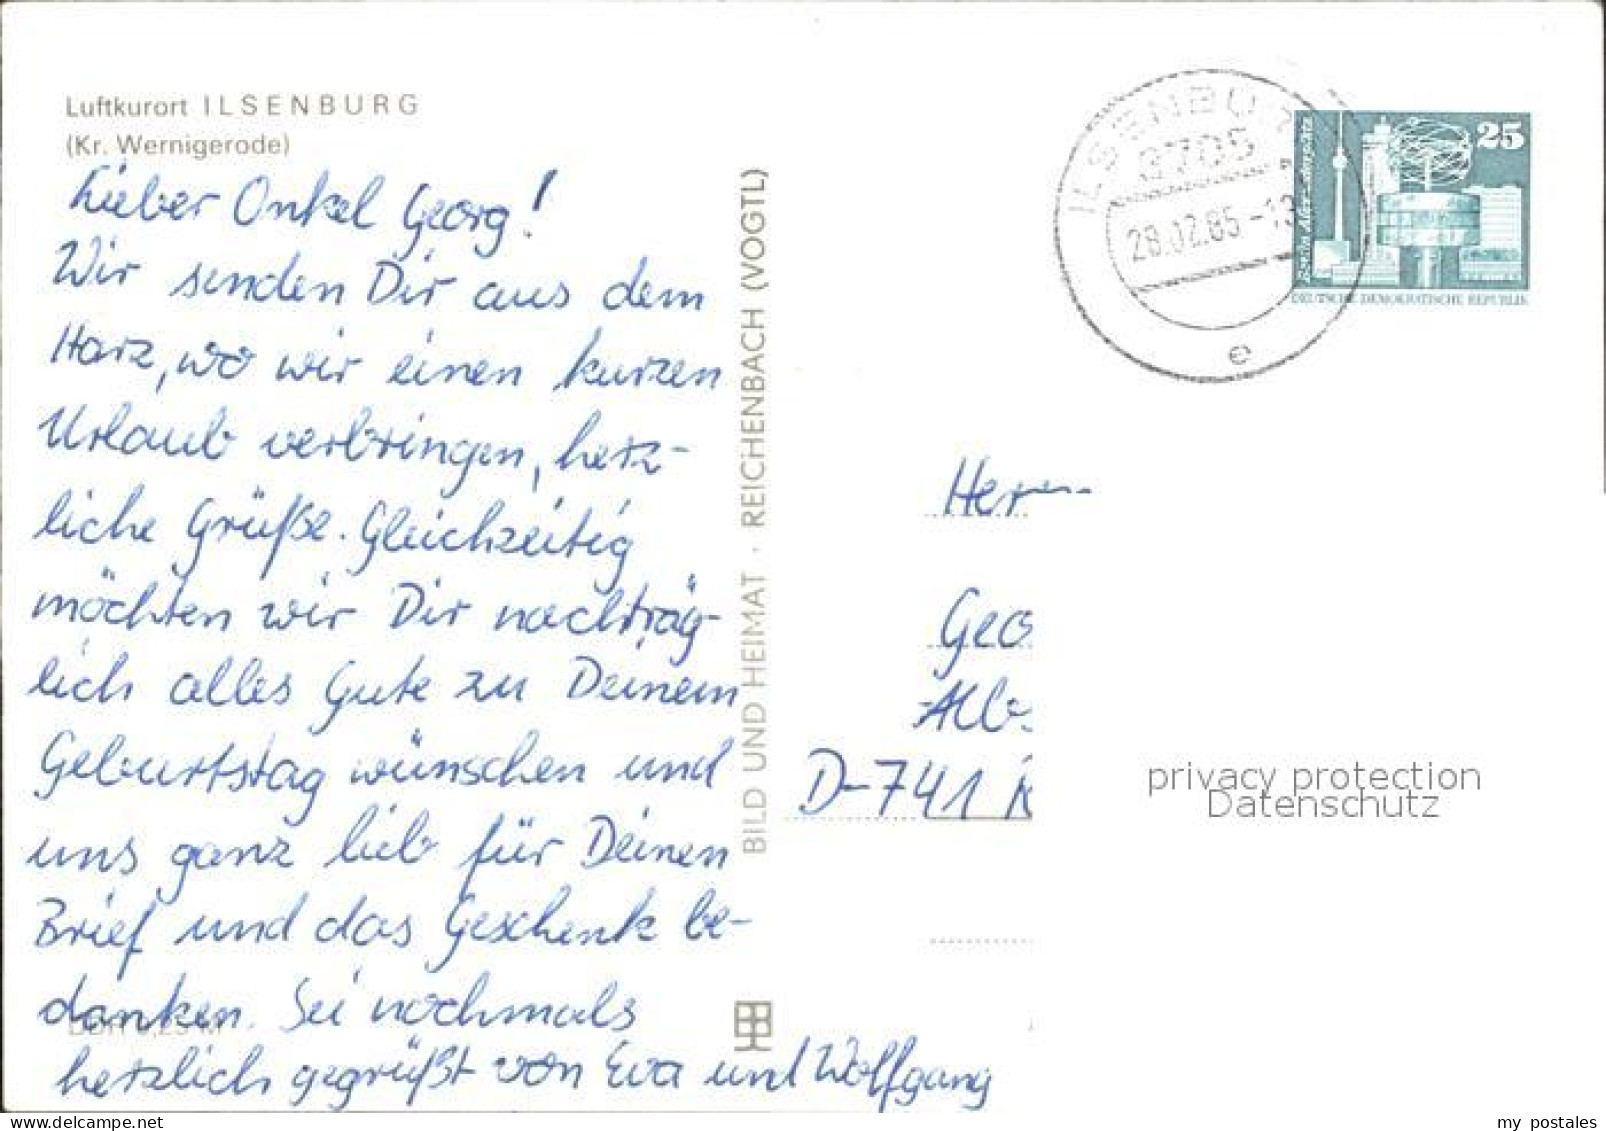 Luftkurort ILSENBURG
(Kr. Wernigerode)
Lieber Onkel Georg!
Wir senden Dir aus dem
Harz, wo wir einen kurzen
Urlaub verbringen, herz-
liche Grüße. Gleichzeitig
möchten wir Dir nachträg-
lich alles Gute zu Deinem
Geburtstag wünschen und
uns ganz lieb für Deinen
Brief und das Geschenk be-
danken. Sei nochmals
herzlich gegrüßt von Eva und Wolfgang
BILD UND HEIMAT · REICHENBACH (VOGTL)
ILSENBU
3705
28.02.85-13
e
25
Berlin, Alexanderplatz
DEUTSCHE DEMOKRATISCHE REPUBLIK
Herrn
Geo
D-741
privacy protection
Datenschutz
delcampe.net
my_postales